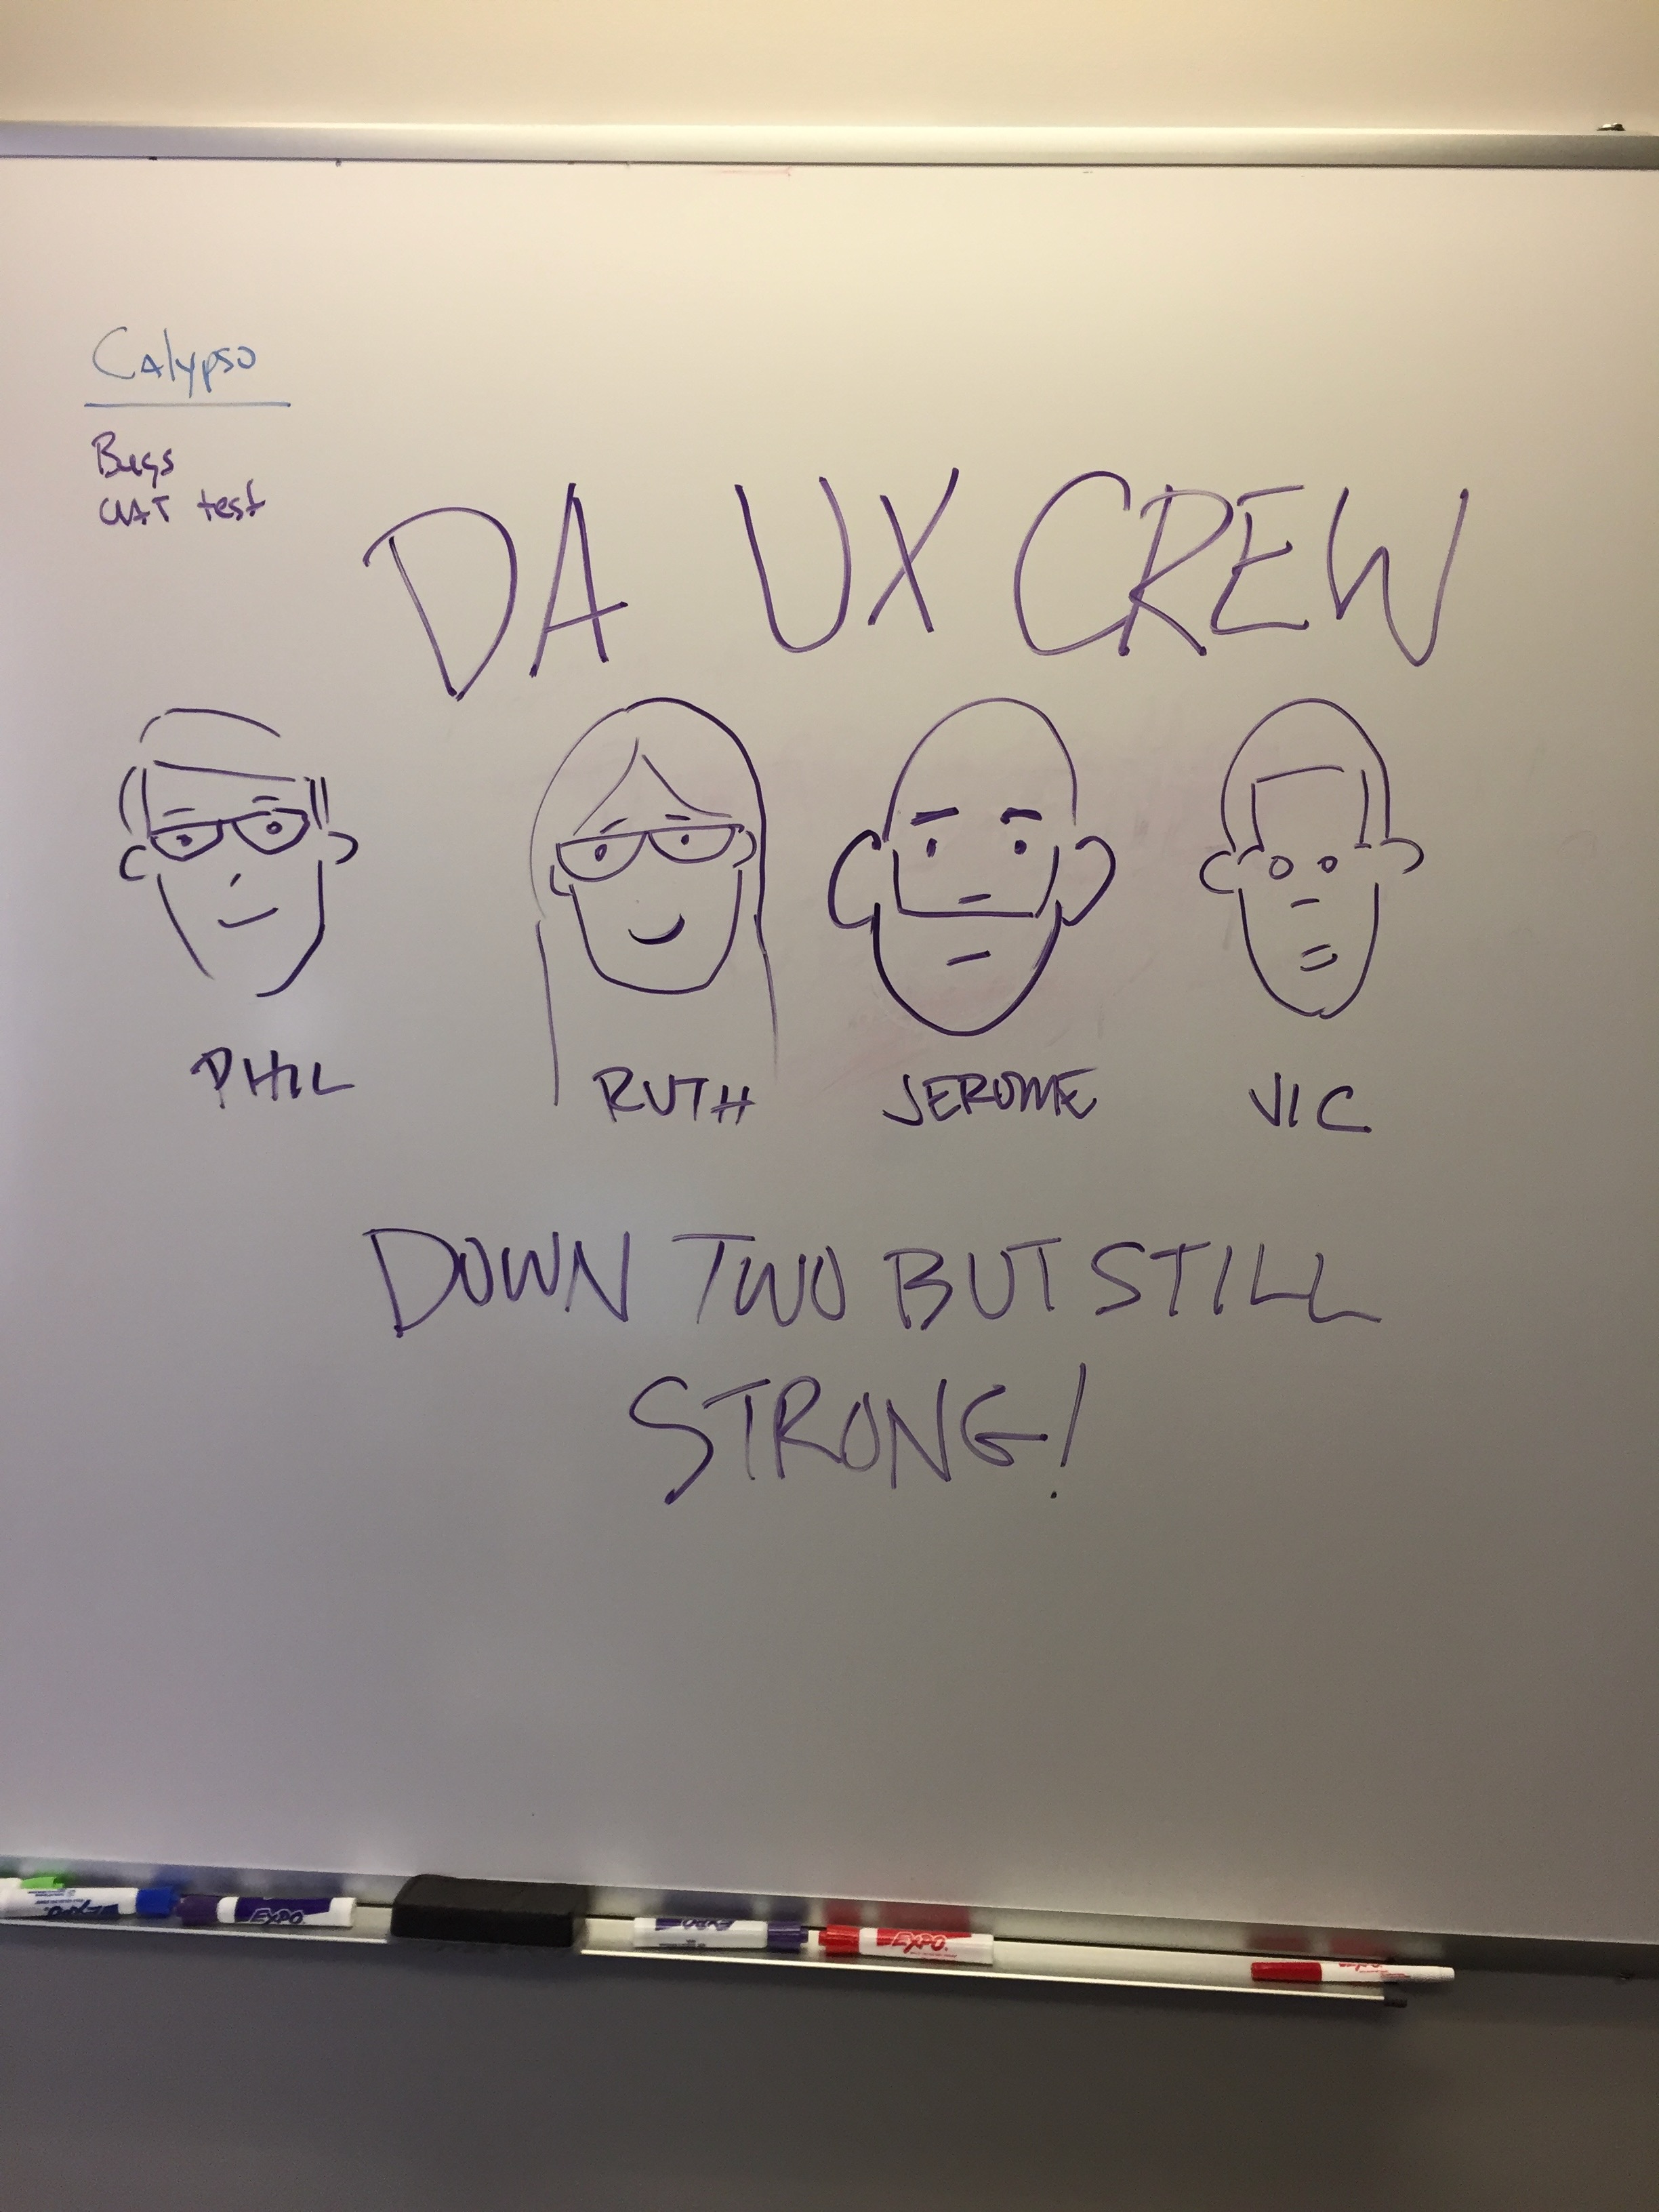 Calypso
Bugs
UAT test
DA UX CREW
PHIL RUTH JEROME VIC
DOWN TWO BUT STILL
STRONG!
EXPO
EXPO
EXPO
EXPO
EXPO